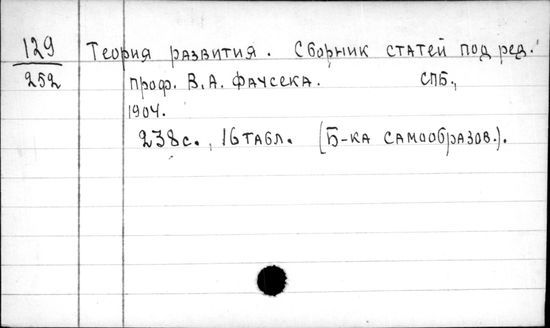 129
252
Теория развития. Сборник статей под ред.
проф. В.А. Фаусека. СПБ.,
1904.
238с., 16 табл. (Б-ка самообразов.).